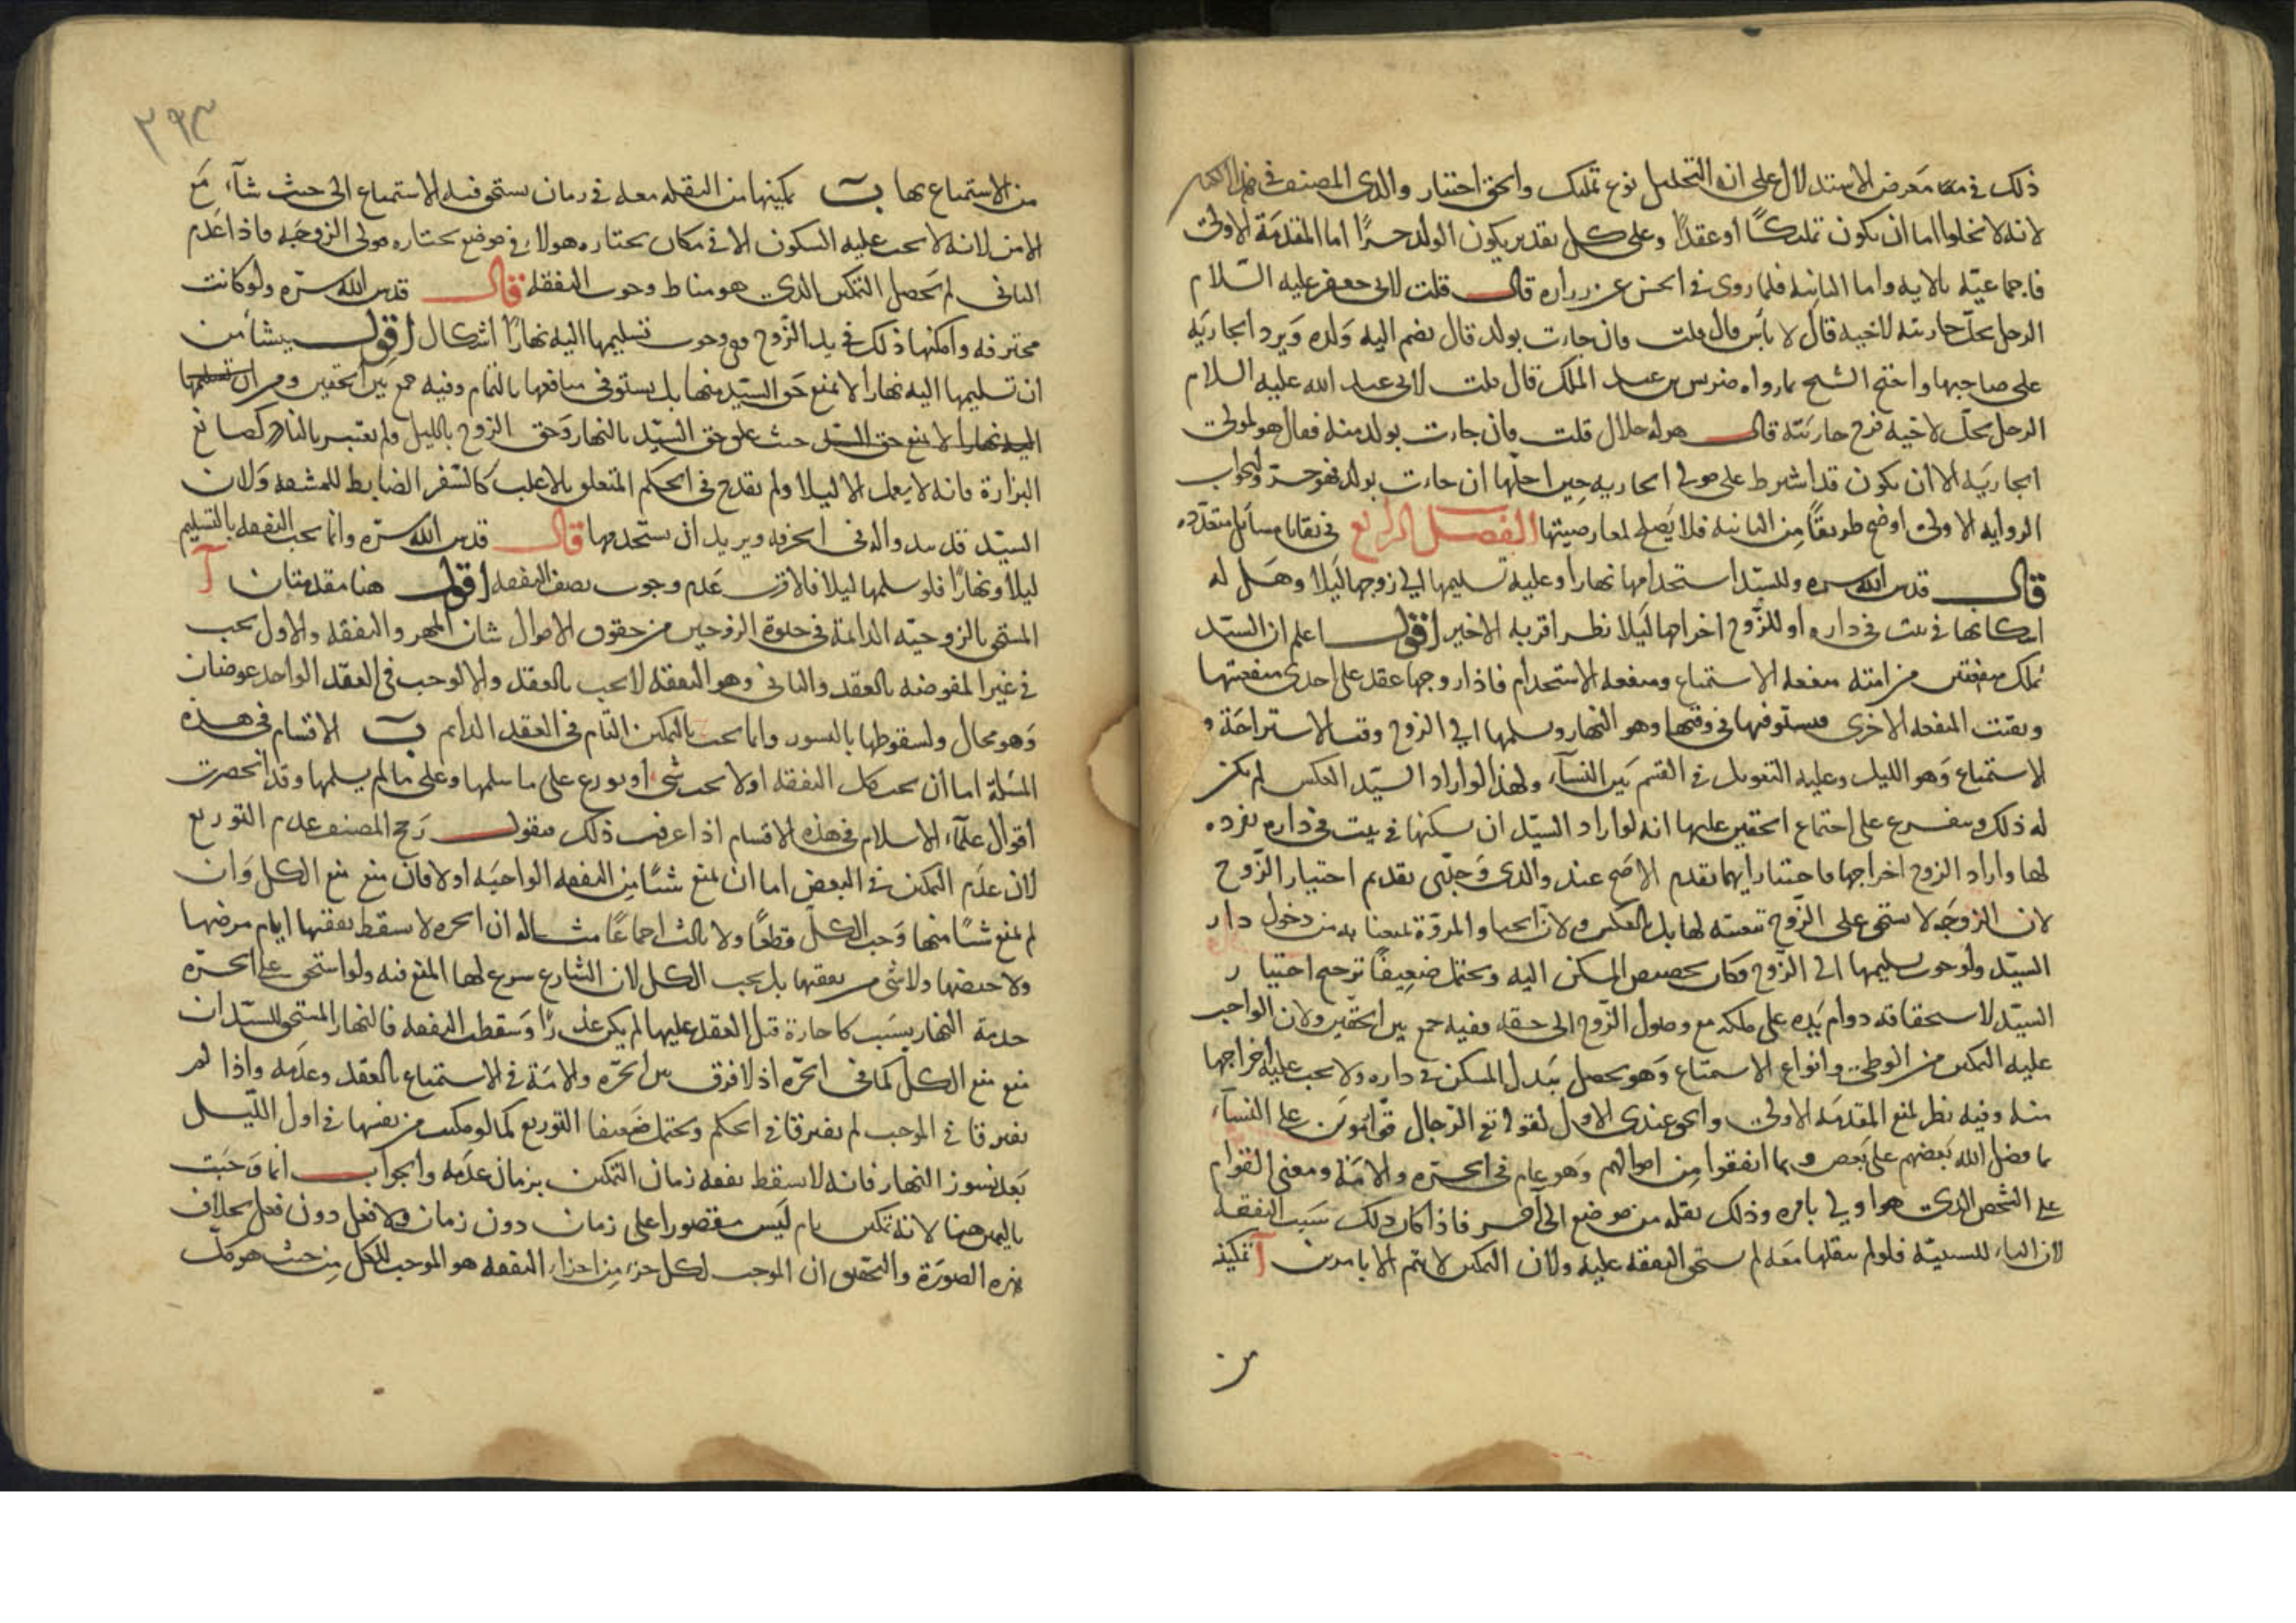 ذلك في معرض الاستدلال على ان التحليل نوع تمليك والحق اختيار والدى المصنف في هذا
لانه لا يخلوا اما ان يكون تمليكًا او عقدًا وعلى كل تقدير يكون الولد حرًا اما المقدمة الاولى
فاجماعيّة بالايه واما الثانية فلما روى في الحسن عن زراره قال قلت لابى جعفر عليه السّلام
الرجل يحلّ جاريته لاخيه قال لا بأس قال قلت فان جاءت بولد قال يضم اليه ولده ويرد الجاريه
على صاحبها واحتج الشيخ بما رواه ضريس بن عبد الملك قال قلت لابى عبد الله عليه السلام
الرجل يحلّ لاخيه فرج جاريته قال هو له حلال قلت فان جاءت بولد منه فقال هو لمولى
الجاريه الا ان يكون قد اشترط على مولى الجاريه حين احلّها ان جاءت بولد فهو حرّ والجواب
الروايه الاولى اوضح طريقًا من الثانية فلا يصلح لمعارضيتها الفصل الرابع في بقايا مسائل متعدّده
قال قدس الله سره وللسيّد استخدامها نهارا وعليه تسليمها الى زوجها ليلا وهل له
اسكانها في بيت في داره او للزّوج اخراجها ليلا نظر اقربه الاخير اقول اعلم ان السيّد
يملك منفعتين من امته منفعه الاستمتاع ومنفعه الاستخدام فاذا زوجها عقد على احدى منفعتيها
وبقيت المنفعه الاخرى فيستوفيها في وقتها وهو النهار ويسلمها الى الزوج وقت الاستراحة و
الاستمتاع وهو الليل وعليه التعويل في القسم بين النسآء ولهذا لو اراد السيّد العكس لم يكن
له ذلك ويتفرع على اجتماع الحقين عليها انه لو اراد السيّد ان يسكنها في بيت في داره يفرده
لها واراد الزوج اخراجها فاختيار ايهما تقدم الاصح عند والدى وجدّى تقديم اختيار الزّوج
لان الزوجه لا يستحق على الزّوج تبعيته لها بل العكس ولانّ الحيا والمروّة تمنعانه من دخول دار
السيّد ولوجوب تسليمها الى الزّوج فكان تخصيص المسكن اليه ويحتمل ضعيفًا ترجيح اختيار
السيّد لاستحقاقه دوام يده على ملكه مع وصول الزّوج الى حقه ففيه جمع بين الحقّين ولان الواجب
عليه التمكين من الوطى وانواع الاستمتاع وهو يحصل ببذل المسكن في داره ولا يجب عليه اخراجها
منه وفيه نظر لمنع المقدمه الاولى والحق عندى الاول لقوله تع الرّجال قوّامون على النسآء
بما فضل الله بعضهم على بعض وبما انفقوا من اموالهم وهو عام في الحرّه والامة ومعنى القوام
على الشخص الذى هو اولى بامره وذلك بنقله من موضع الى آخر فاذا كان ذلك سبب النفقه
لان الباء للسببيّه فلو لم ينقلها معه لم يستحق النفقه عليه ولان التمكين لا يتم الا بامرين آ تمكينه
من
٣٩٣
من الاستمتاع بها ب تمكينها من النقله معه في زمان يستحق فيه الاستمتاع الى حيث شآء مع
الامن لانه لا يجب عليه السكون الا في مكان يختاره هو لا في موضع يختاره مولى الزوجه فاذا عدم
الثانى لم يحصل التمكين الذى هو مناط وجوب النفقه قال قدس الله سرّه ولو كانت
محترفه وامكنها ذلك في يد الزّوج ففى وجوب تسليمها اليه نهارًا اشكال اقول ينشأ من
ان تسليمها اليه نهارا لا يمنع حق السيّد منها بل يستوفى منافعها بالتمام وفيه جمع بين الحقين ومن ان تسليمها
اليه نهارا لا يمنع حق السيّد حيث علق حق السيّد بالنهار وحق الزوج بالليل ولم يعتبر بالنادر كصانع
البزارة فانه لا يعمل الا ليلا ولم يقدح في الحكم المتعلق بالاغلب كالسّفر الضابط للمشقه ولان
السيّد قد يبدو له في الحرفه ويريد ان يستخدمها قال قدس الله سرّه وانما يجب النفقه بالتسليم
ليلا ونهارًا فلو سلمها ليلا فالاقرب عدم وجوب نصف النفقه اقول هنا مقدمتان آ
المستحق بالزوجيّه الدائمة في حلوة الزوجين من حقوق الاموال شيئان المهر والنفقه والاول يجب
في غير المفوضه بالعقد والثانى وهو النفقه لا يجب بالعقد والا لوجب في العقد الواحد عوضان
وهو محال ولسقوطها بالنشوز وانما يجب بالتمكين التام في العقد الدائم ب الاقسام في هذه
المسئلة اما ان يجب كل النفقه او لا يجب شئ او يوزع على ما سلمها وعلى ما لم يسلمها وقد انحصرت
اقوال علمآء الاسلام في هذه الاقسام اذا عرفت ذلك فنقول رجح المصنف عدم التوزيع
لان عدم التمكين في البعض اما ان يمنع شيئًا من النفقه الواجبه او لا فان منع منع الكل وان
لم يمنع شيئًا منها وجب الكلّ قطعًا ولا ثالث اجماعًا مثاله ان الحره لا يسقط نفقتها ايام مرضها
ولا حيضها ولا شئ من نفقتها بل يجب الكل لان الشارع سوغ لها المنع فيه ولو استحق على الحرّه
خدمة النهار بسبب كاجارة قبل العقد عليها لم يكن عذرًا وسقطت النفقه فالنهار المستحق للسيّد ان
منع منع الكل كما في الحرّه اذ لا فرق بين الحرّه والامة في الاستمتاع بالعقد وعدمه واذا لم
يفترقا في الموجب لم يفترقا في الحكم ويحتمل ضعيفا التوزيع كما لو مكنت من نفسها في اول الليل
بعد نشوز النهار فانه لا يسقط نفقه زمان التمكين بزمان عدمه والجواب انما وجبت
بالتمكين هنا لانه تمكين تام ليس مقصورا على زمان دون زمان ولا فعل دون فعل بخلاف
هذه الصورة والتحقيق ان الموجب لكل جزء من اجزاء النفقه هو الموجب للكل من حيث هو كل